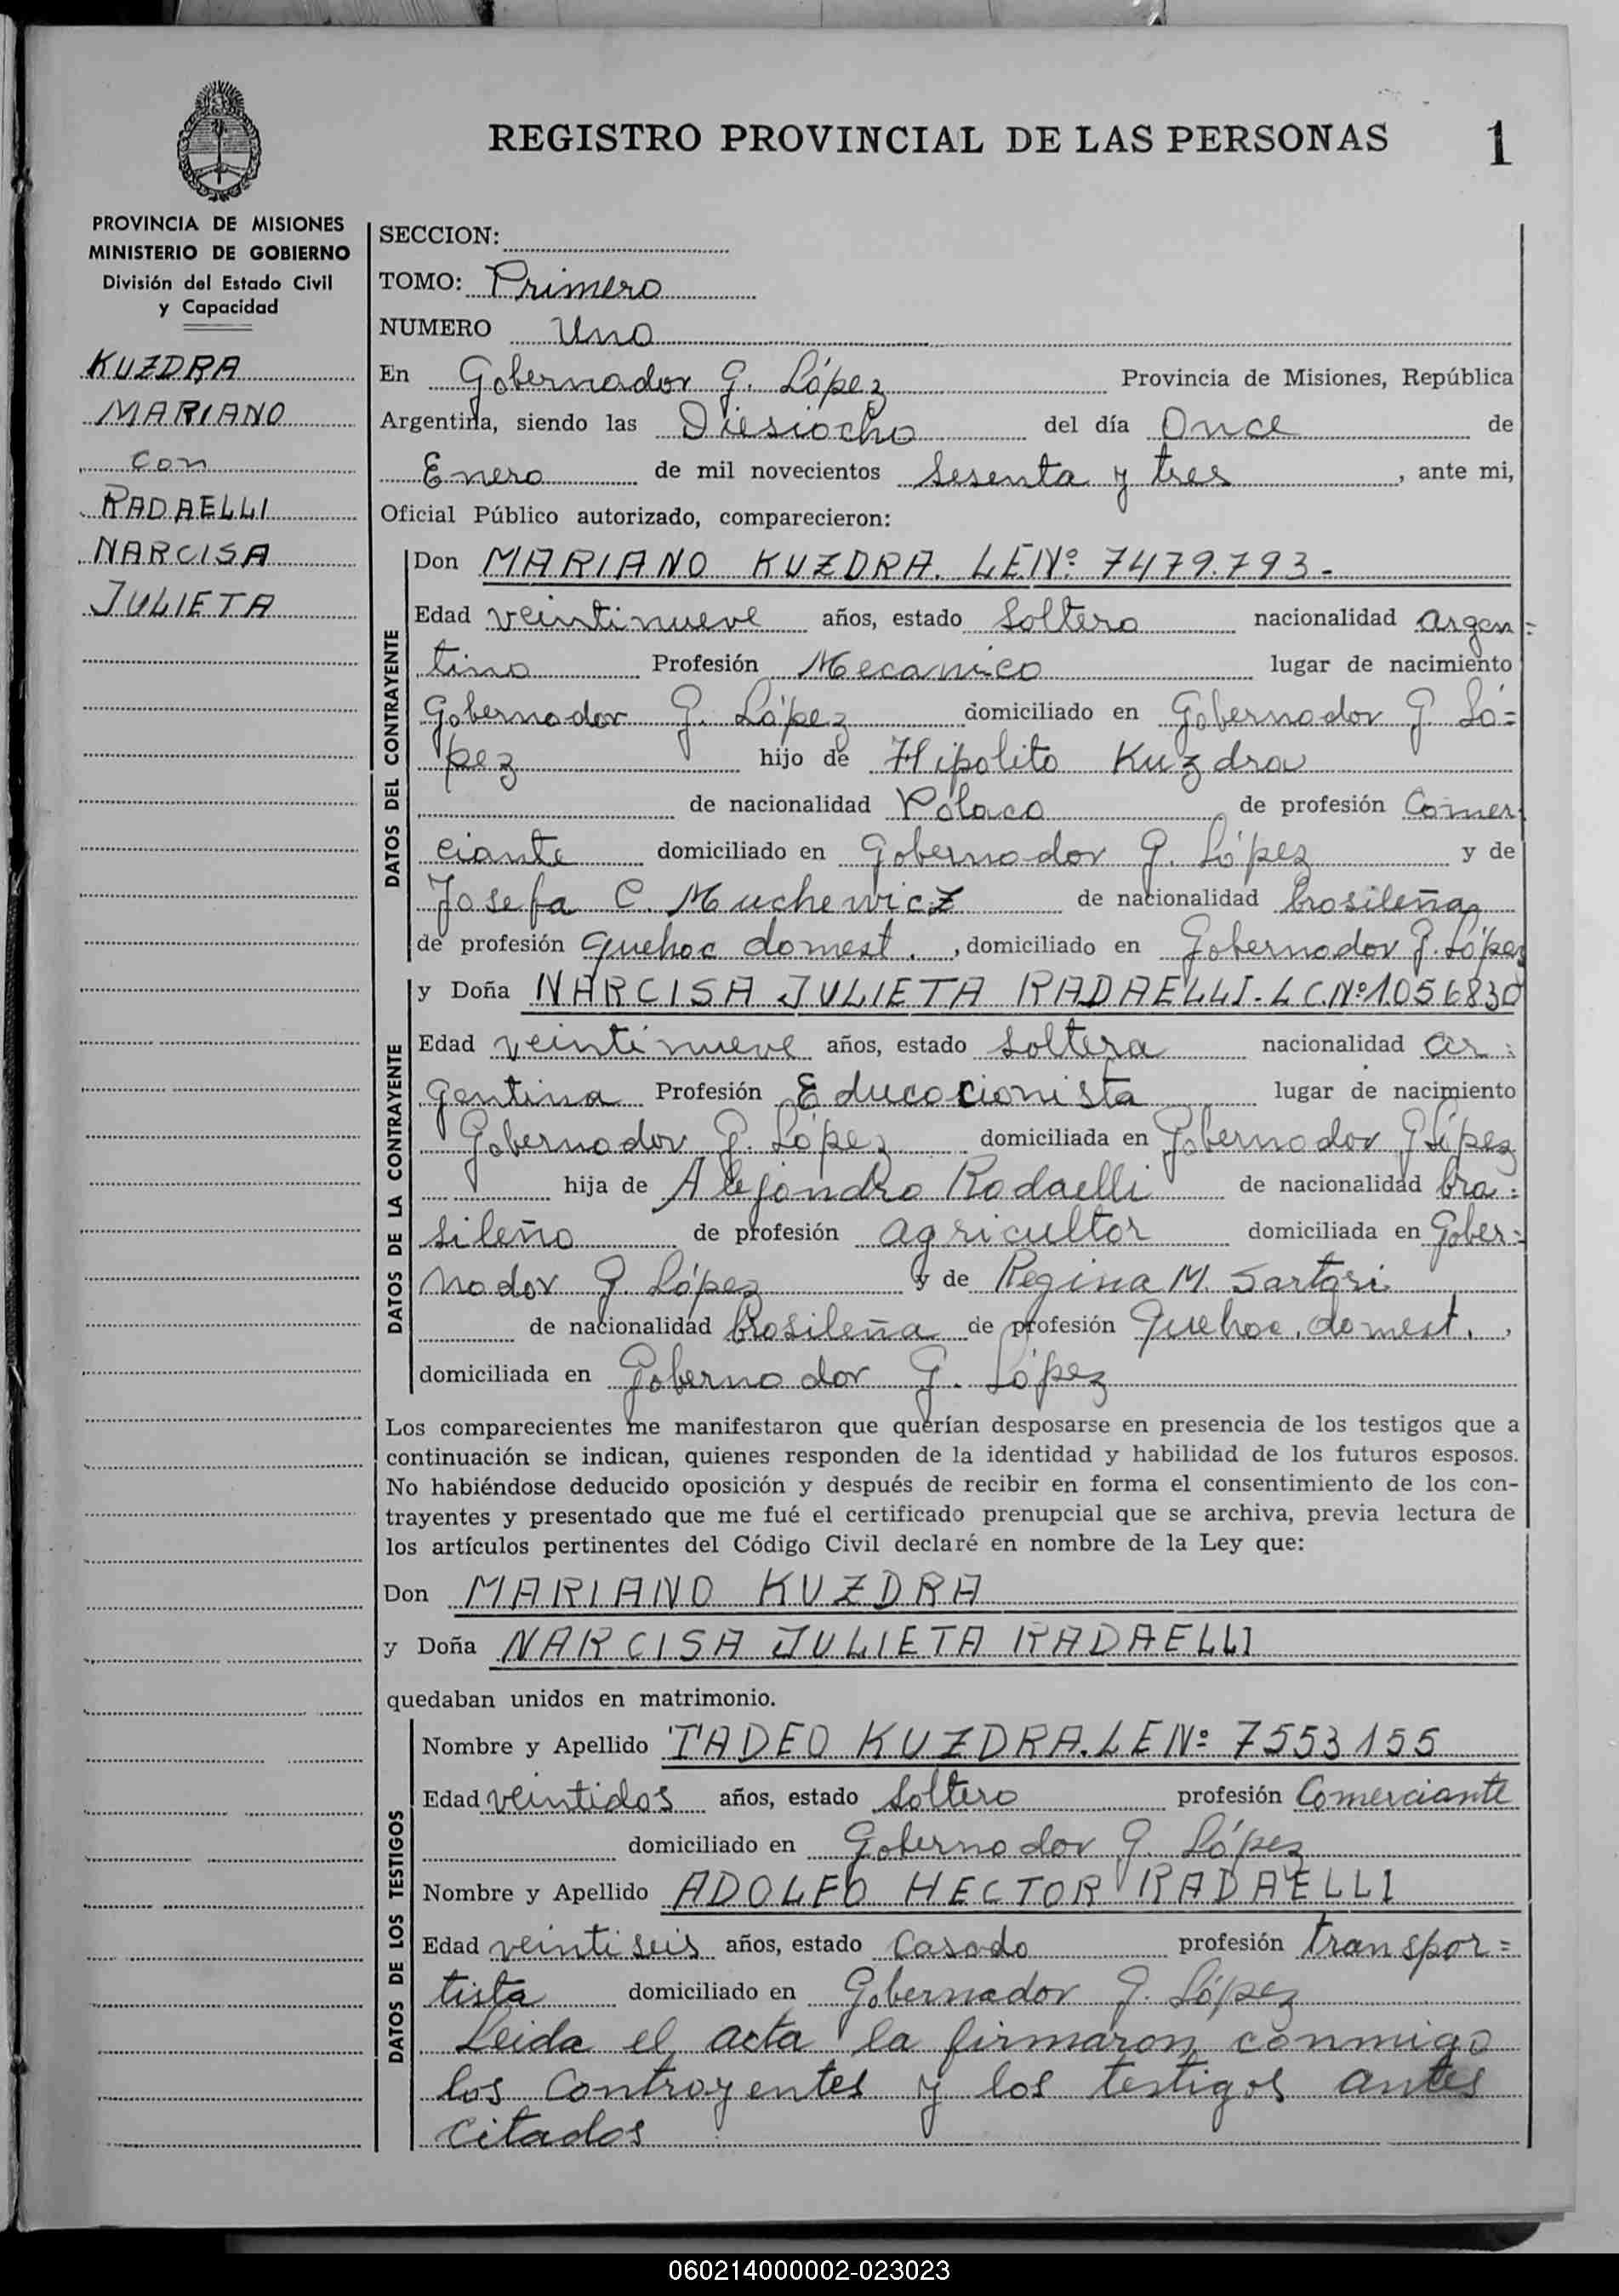 REGISTRO PROVINCIAL DE LAS PERSONAS
1
PROVINCIA DE MISIONES
MINISTERIO DE GOBIERNO
División del Estado Civil
y Capacidad
KUZDRA
MARIANO
con
RADAELLI
NARCISA
JULIETA
SECCION:
TOMO: Primero
NUMERO Uno
En Gobernador G. López Provincia de Misiones, República
Argentina, siendo las Diesiocho del día Once de
Enero de mil novecientos Sesenta y tres, ante mi,
Oficial Público autorizado, comparecieron:
DATOS DEL CONTRAYENTE
Don MARIANO KUZDRA. LE.Nº 7479.793-
Edad veintinueve años, estado Soltero nacionalidad argen=
tino Profesión Mecanico lugar de nacimiento
Gobernador G. López domiciliado en Gobernador G. Ló=
pez hijo de Hipolito Kuzdra
de nacionalidad Polaco de profesión Comer
ciante domiciliado en Gobernador G. López y de
Josefa C. Muchewicz de nacionalidad brasileña
de profesión quehac domest. , domiciliado en Gobernador G. López
DATOS DE LA CONTRAYENTE
y Doña NARCISA JULIETA RADAELLI. L C.Nº1.056830
Edad veintinueve años, estado soltera nacionalidad ar=
gentina Profesión Educacionista lugar de nacimiento
Gobernador G. López domiciliada en Gobernador G López
hija de Alejandro Radaelli de nacionalidad bra=
sileño de profesión agricultor domiciliada en Gober=
nador G. López y de Regina M. Sartori
de nacionalidad brasileña de profesión Quehac. domest. ,
domiciliada en Gobernador G. López
Los comparecientes me manifestaron que querían desposarse en presencia de los testigos que a
continuación se indican, quienes responden de la identidad y habilidad de los futuros esposos.
No habiéndose deducido oposición y después de recibir en forma el consentimiento de los con-
trayentes y presentado que me fué el certificado prenupcial que se archiva, previa lectura de
los artículos pertinentes del Código Civil declaré en nombre de la Ley que:
Don MARIANO KUZDRA
y Doña NARCISA JULIETA RADAELLI
quedaban unidos en matrimonio.
DATOS DE LOS TESTIGOS
Nombre y Apellido TADEO KUZDRA. LE Nº 7553155
Edad veintidos años, estado Soltero profesión Comerciante
domiciliado en Gobernador G. López
Nombre y Apellido ADOLFO HECTOR RADAELLI
Edad veintiseis años, estado Casado profesión transpor=
tista domiciliado en Gobernador G. López
Leida el acta la firmaron conmigo
los Contrayentes y los testigos antes
citados
060214000002-023023